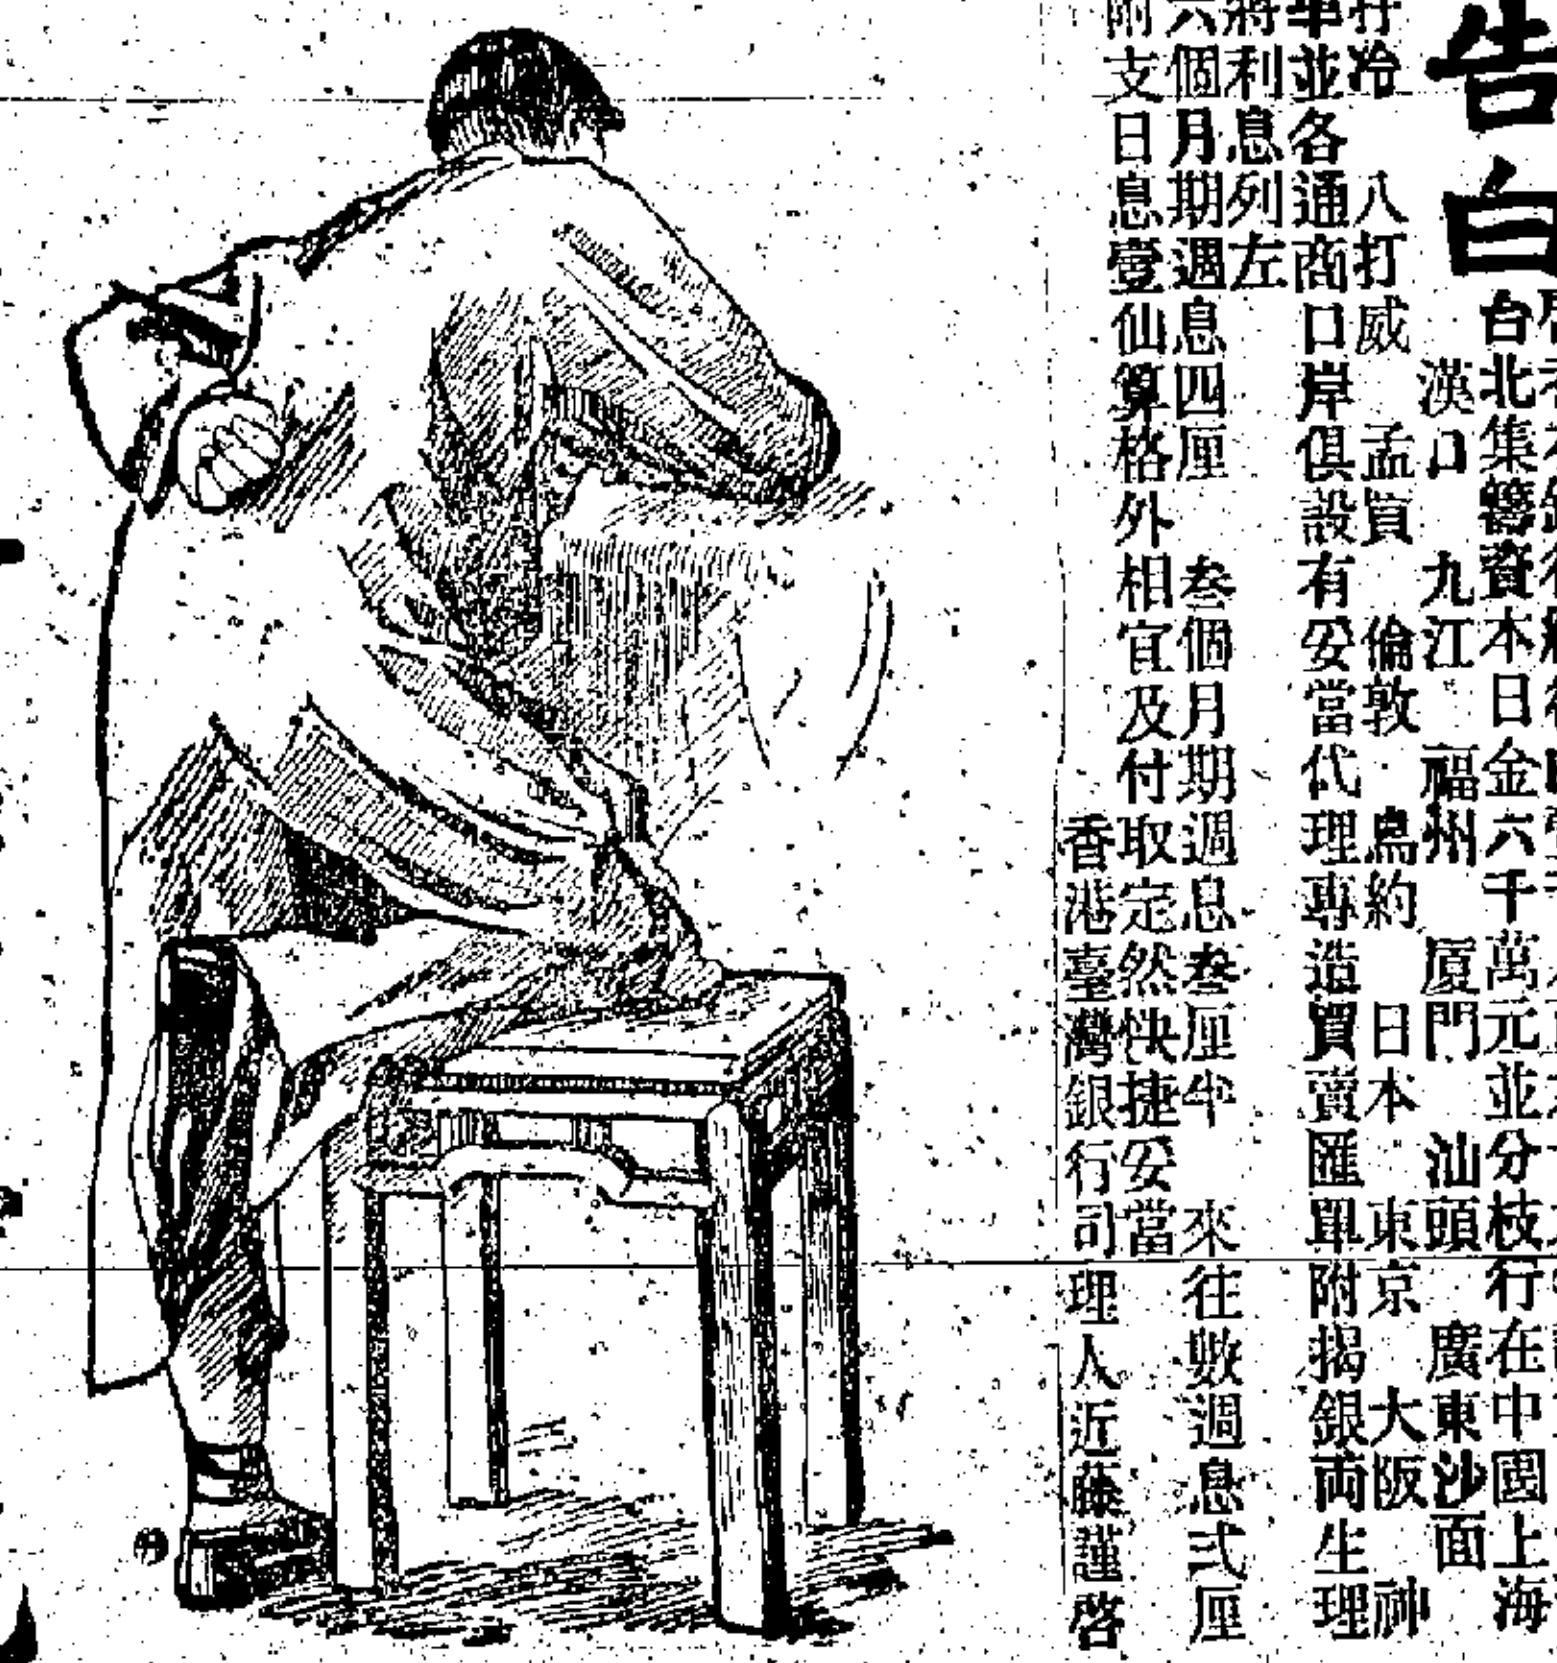 告白
台北集籌資本日金六千萬元並分枝行在中國上海
漢口 九江 福州 厦門 汕頭 廣東沙面
冷 八打威 孟買 倫敦 鳥約 日本 東京 大阪 神
並各通商口岸俱設有妥當代理專造買賣匯單附揭銀両生理
將利息列左
六個月期週息四厘 叁個月期週息叁厘半 來往數週息弍厘
附支日息壹仙算格外相宜及付取定然快捷妥當
香港臺灣銀行司理人近藤謹啓